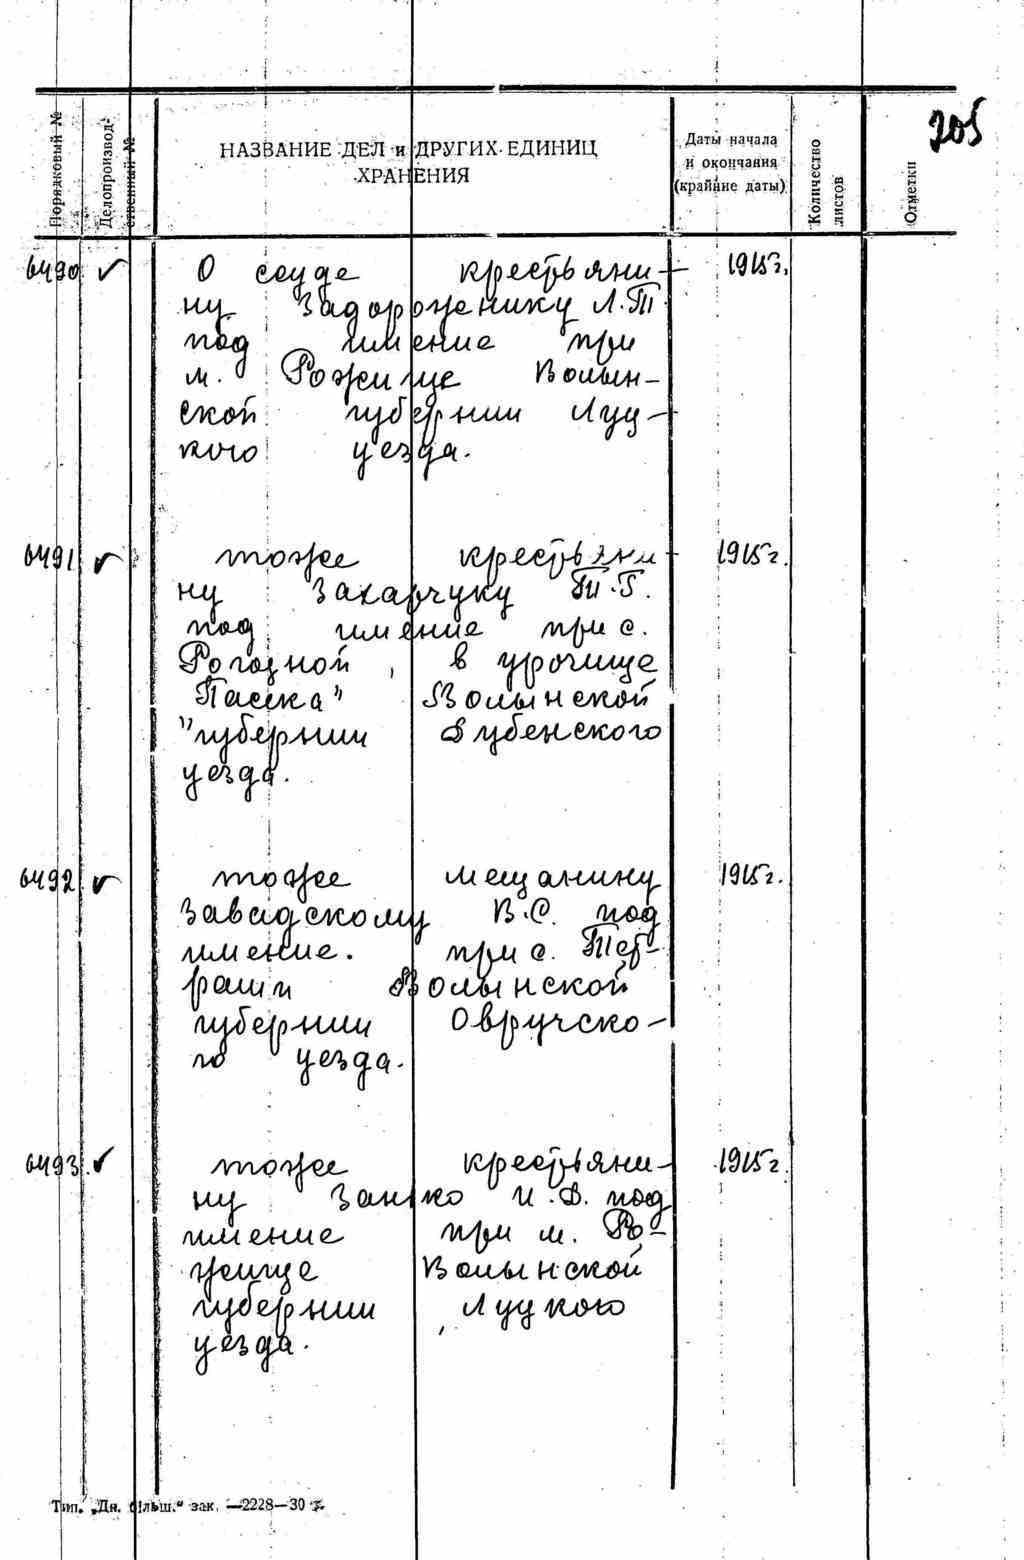 705
Порядковый №
Делопроизвод-
ственный №
НАЗВАНИЕ ДЕЛ и ДРУГИХ ЕДИНИЦ
ХРАНЕНИЯ
Даты начала
и окончания
(крайние даты)
Количество
листов
Отметки
6490 ✓ О ссуде крестьяни- 1915 г.
ну Задорожнику Л.Т.
под имение при
м. Рожище Волын-
ской губернии Луц-
кого уезда.
6491 ✓ тоже крестьяни- 1915 г.
ну Захарчуку Т.Г.
под имение при с.
Рогозной, в урочище
Пасека" Волынской
"губернии Дубенского
уезда.
6492 ✓ тоже мещанину 1915 г.
Завадскому В.С. под
имение. при с. Тер-
раши Волынской
губернии Овручско-
го уезда.
6493 ✓ тоже крестьяни- 1915 г.
ну Занько И.Д. под
имение при м. Ро-
жище Волынской
губернии Луцкого
уезда.
Тип. „Дн. більш." зак. —2228—30 т.